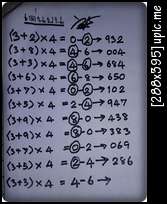 (3+2)×4 = 0-2→932
(3+8)×4 = 4-6→004
(3+3)×4 = 4-6→684
(3+6)×4 = 6-8→650
(3+7)×4 = 0-2→102
(3+5)×4 = 2-4→947
(3+9)×4 = 8-0→438
(3+9)×4 = 8-0→383
(3+7)×4 = 0-2→069
(3+5)×4 = 2-4→286
(3+3)×4 = 4-6→
[288x395] upic.me